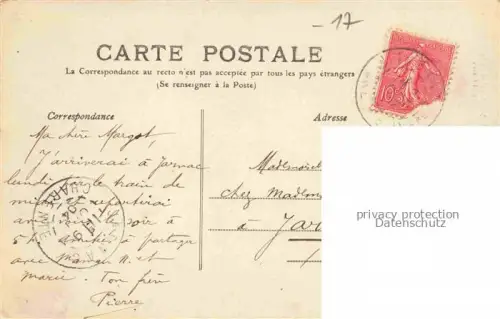 - 17
CARTE POSTALE
La Correspondance au recto n'est pas acceptée par tous les pays étrangers
(Se renseigner à la Poste)
Correspondance
Adresse
Ma chère Margot,
J'arriverai à Jarnac
lundi par le train de
midi, et repartirai
le soir à
5h à partager
avec Maman M. et
Marie. Ton frère
Pierre
10c
CHARENTE
Mademoisel
chez Madame
à Jar
privacy protection
Datenschutz